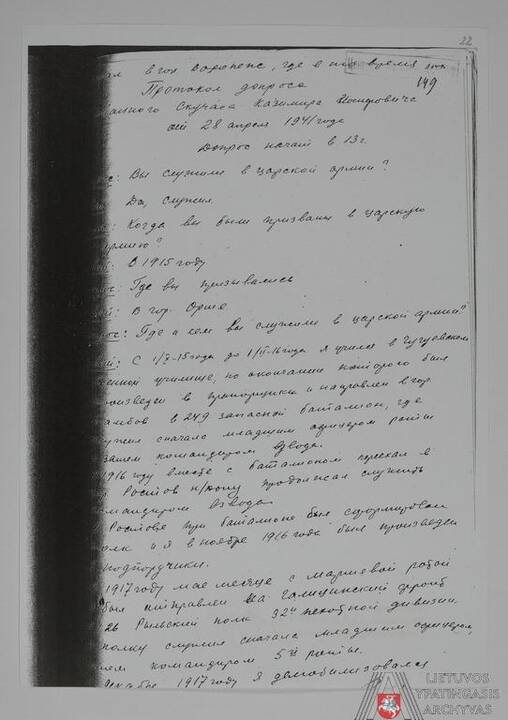 22
149
в гор Воронеж, где в это время
Протокол допроса
Скучаса Казимира Иосифовича
от 28 апреля 1941 года
Допрос начат в 13 г.
Вы служили в царской армии?
Да, служил
Когда вы были призваны в царскую
армию?
В 1915 году
Где вы призывались
В гор. Орше
Где и кем вы служили в царской армии?
до 1/II-16 года я учился в Чугуевском
училище, по окончании которого был
произведен в прапорщики и направлен в гор
в 249 запасной батальон, где
сначала младшим офицером роты
затем командиром взвода.
1916 году вместе с батальоном переехал в
Ростов н/Дону продолжал служить
командиром взвода.
Ростове при батальоне был сформирован
полк и я в ноябре 1916 года был произведен
подпоручики.
1917 году мае месяце с маршевой ротой
был отправлен на Галицинский фронт
26 Рыльский полк 32й пехотной дивизии.
полку служил сначала младшим офицером,
командиром 5й роты.
декабре 1917 году я демобилизовался
LIETUVOS
YPATINGASIS
ARCHYVAS